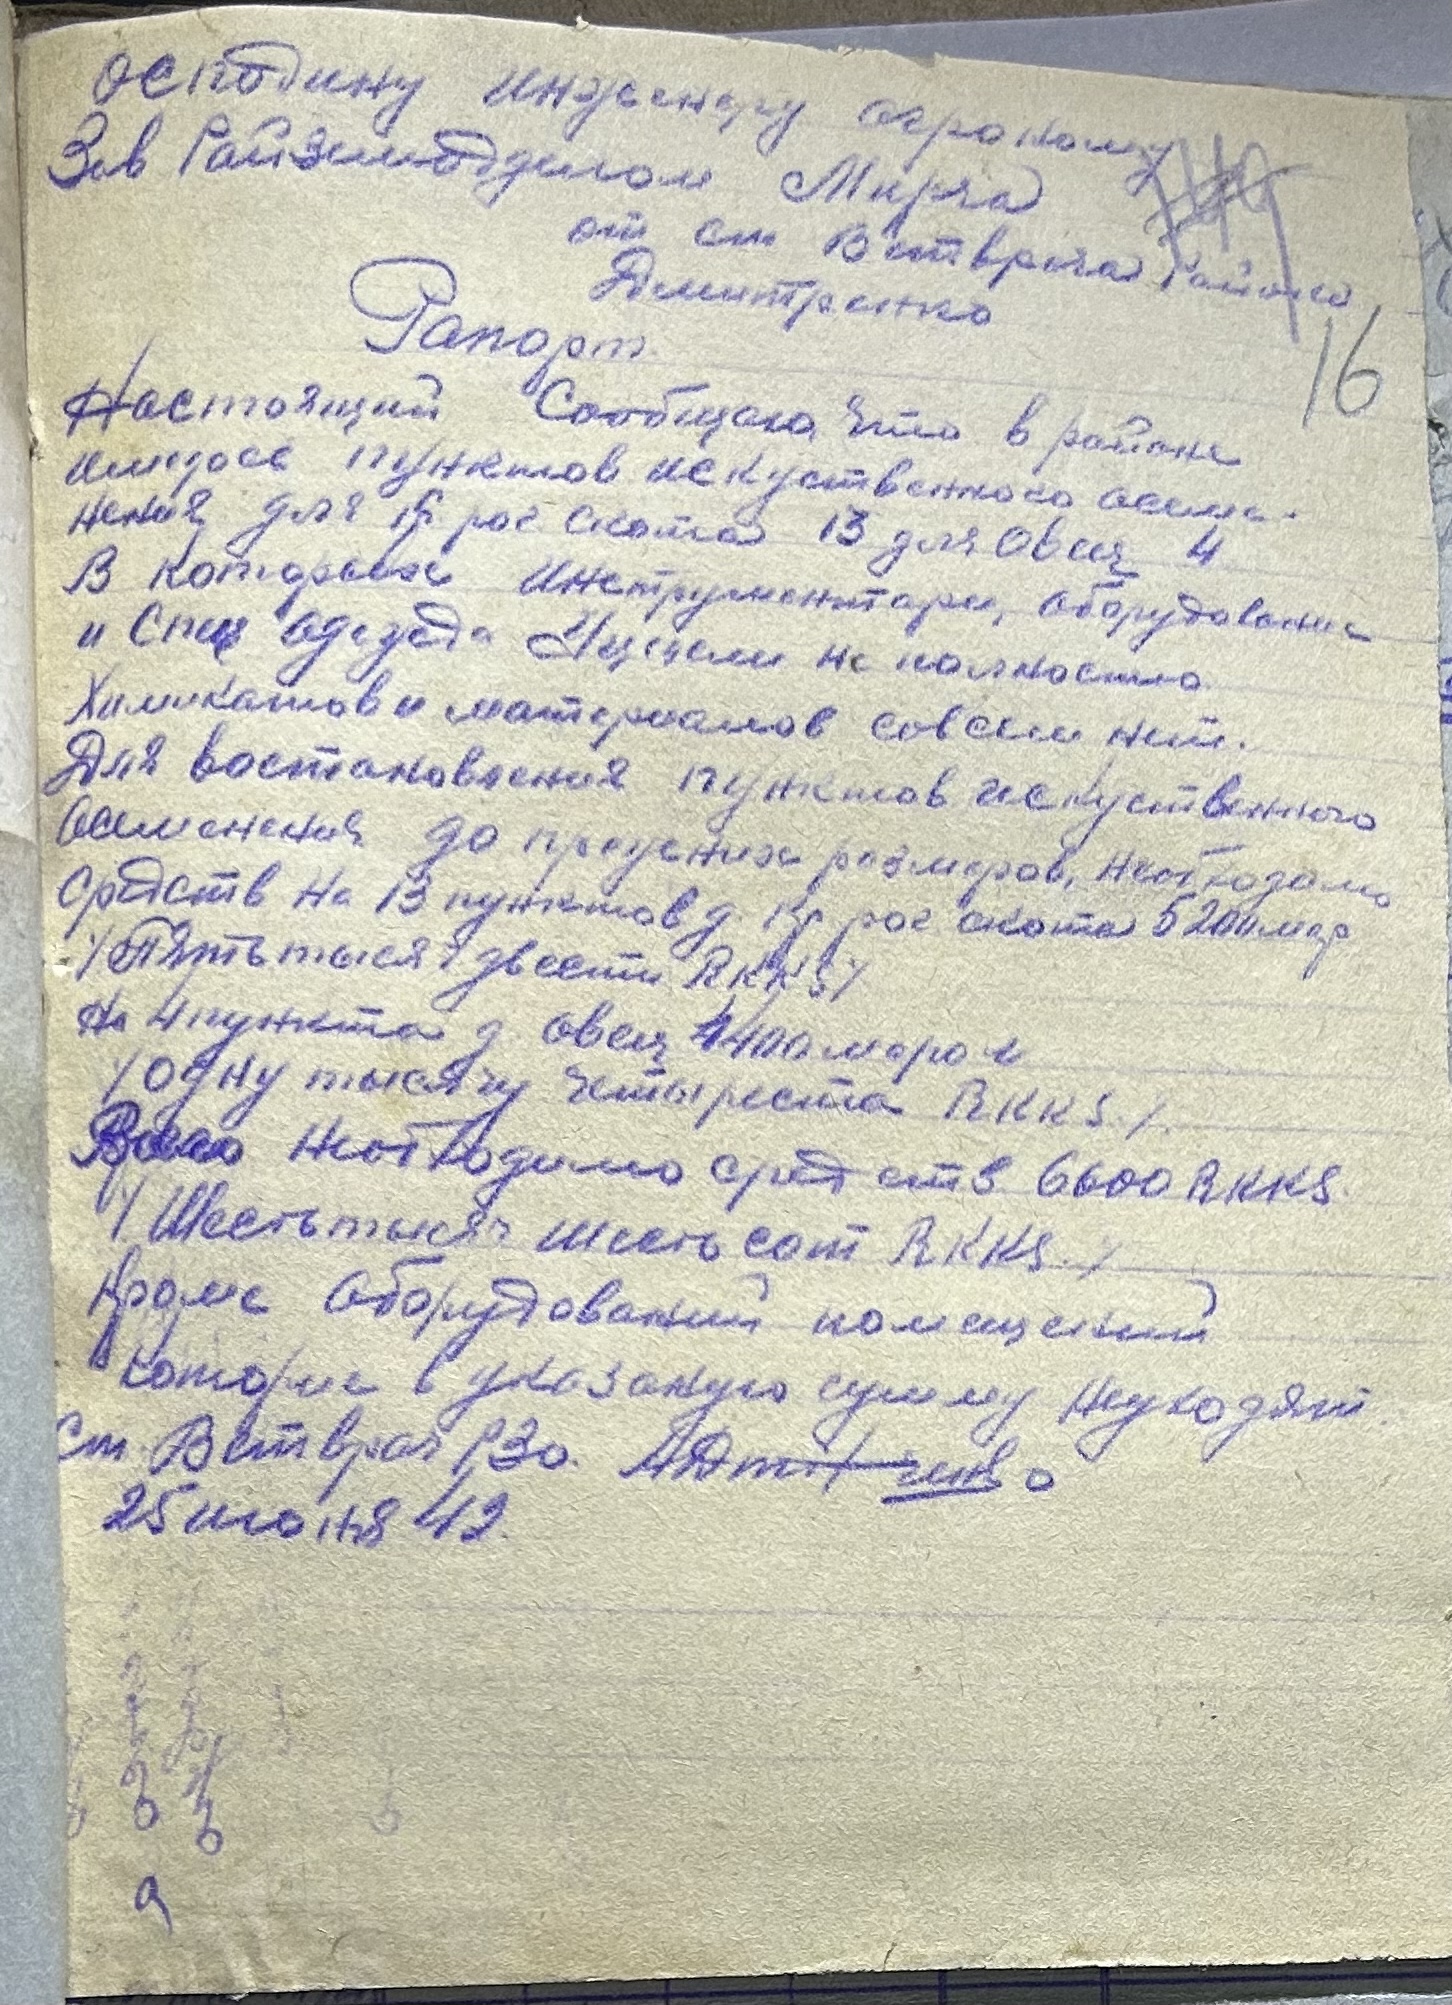 осподину инженеру агроному
Зав Райземотделом Миря
от ст Ветврача Района
Дмитренко
16
Рапорт
Настоящий Сообщаю, что в районе
имелось пунктов искуственного осеме-
нения, для кр рог скота 13 для овец 4
В которых Инструментари, оборудование
и Спец одезда Уцелели не полностью
Химикатов и материалов совсем нет.
Для востановления пунктов искуственного
осеменения до прежних размеров, необходимо
средств на 13 пунктов д. кр рог скота 5200 мар
/Пять тысяч двести RKKS/
На 4 пункта д овец 1400 марок
/Одну тысячу четыреста RKKS./.
Всего необходимо средств 6600 RKKS.
/Шесть тысяч шесть сот RKKS./
Кроме оборудований помещений
которые в указаную сумму неуходят.
Ст. Ветврач РЗО.
25 июня 42.